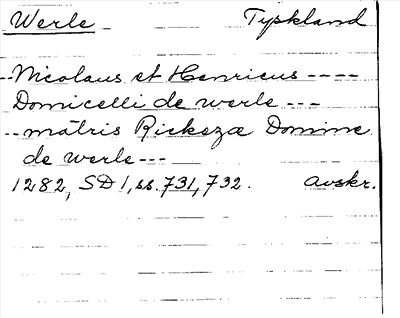 Werle Tyskland
--Nicolaus et Henricus ----
Domicelli de werle ---
-- mātris Rickeza Domine
de werle ---
1282, SD 1, ss. 731, 732. avskr.